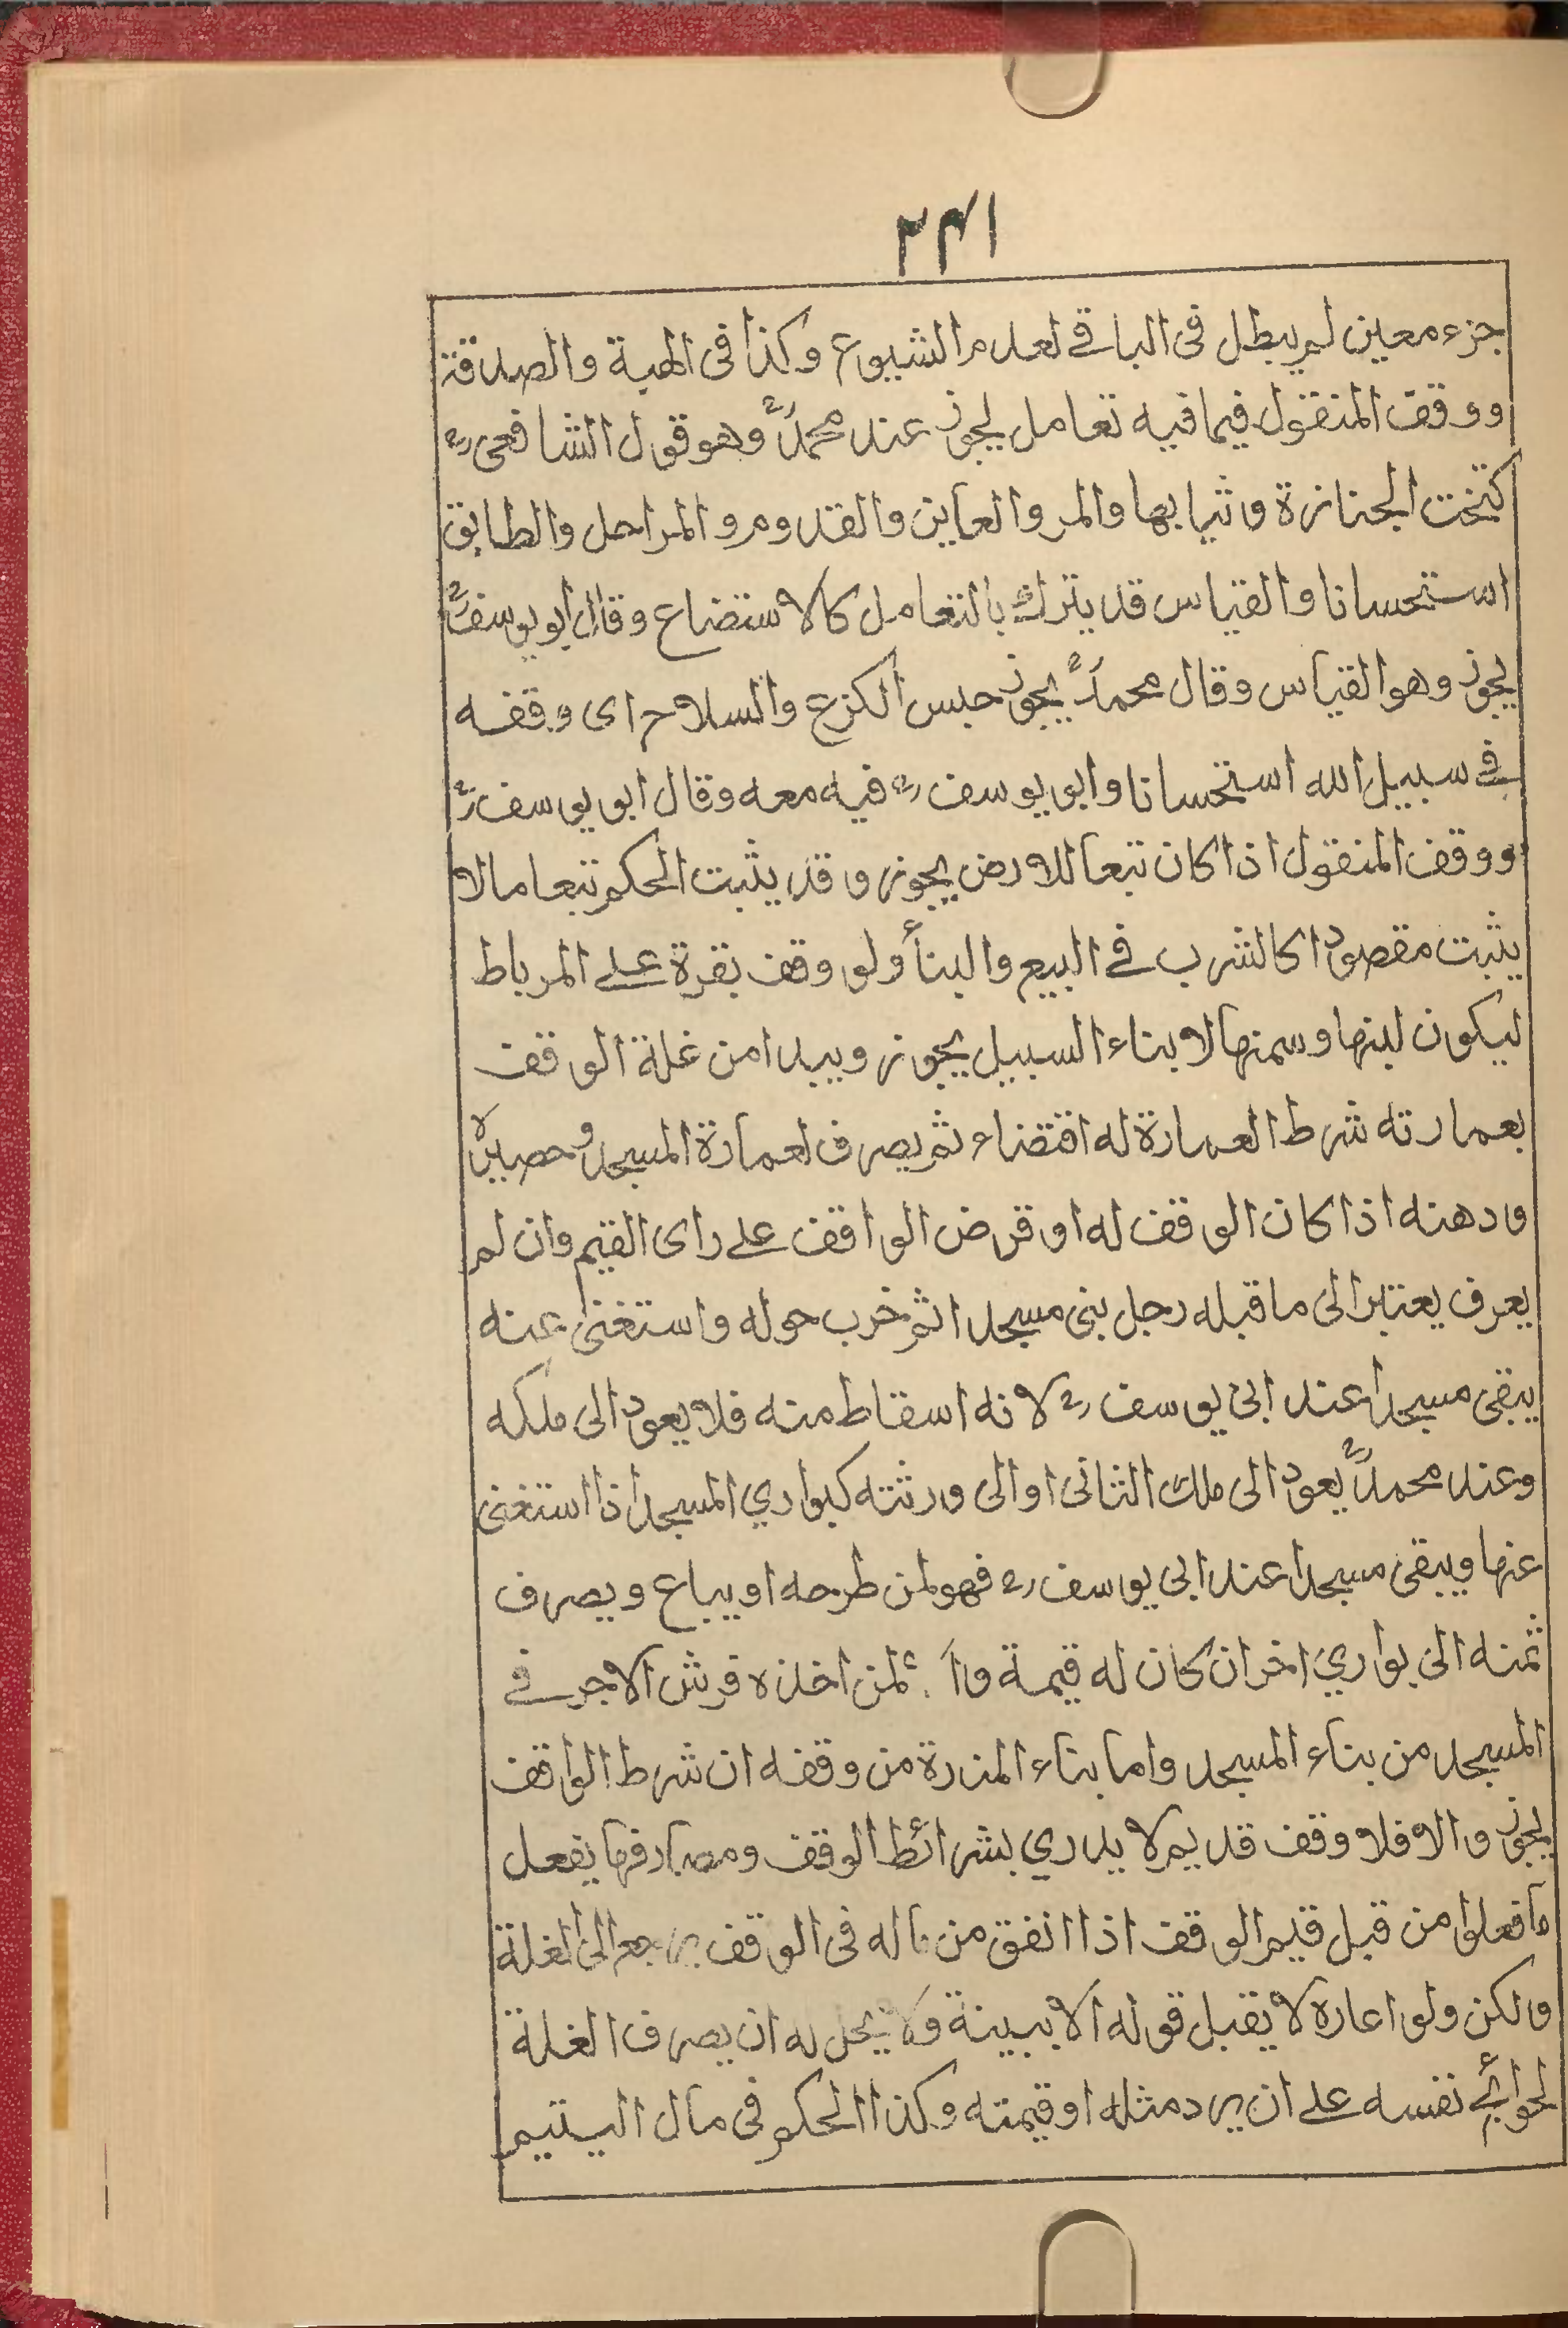 ٢٣١
جزء معين لم يبطل فى الباقے لعدم الشيوع وكذا فى الهبة والصدقة
ووقف المنقول فيما فيه تعامل يجوز عند محمدؒ وهو قول الشافعىؒ
كتخت الجنازة وثيابها والمر والعاين والقدوم والمراحل والطابق
استحسانا والقياس قد يترك بالتعامل كالاستضاع وقال ابو يوسفؒ
يجوز وهو القياس وقال محمدؒ يجوز حبس الكرع والسلاح اى وقفه
فے سبيل الله استحسانا وابو يوسفؒ فيه معه وقال ابو يوسفؒ
ووقف المنقول اذا كان تبعا للارض يجوز وقد يثبت الحكم تبعا مالا
يثبت مقصودا كالشرب فے البيع والبنأ ولو وقف بقرة علے المرباط
ليكون لبنها وسمنها لابناء السبيل يجوز ويبدا من غلة الوقف
بعمارته شرط العمارة له اقتضاء ثم يصرف لعمارة المسجد وحصيره
ودهنه اذا كان الوقف له او قرض الواقف علے راى القيم وان لم
يعرف يعتبر الى ما قبله رجل بنى مسجدا ثم خرب حوله واستغنى عنه
يبقى مسجدا عند ابى يوسفؒ لانه اسقاط منه فلا يعود الى ملكه
وعند محمدؒ يعود الى ملك الثانى او الى ورثته كبواري المسجد اذا استغنى
عنها ويبقى مسجدا عند ابى يوسفؒ فهو لمن طرحه او يباع ويصرف
ثمنه الى بواري اخر ان كان له قيمة لمن اخذه فرش الاجر فے
المسجد من بناء المسجد واما بناء المنرة من وقفه ان شرط الواقف
يجوز والا فلا وقف قديم لا يدري بشرائط الوقف ومصارفها يفعل
ما فعلوا من قبل قيم الوقف اذا انفق من ماله فى الوقف يرجع الى الغلة
ولكن ولو اعاره لا يقبل قوله الا ببينة ولا يحل له ان يصرف الغلة
لحوائج نفسه علے ان يرد مثله او قيمته وكذا الحكم فى مال اليتيم